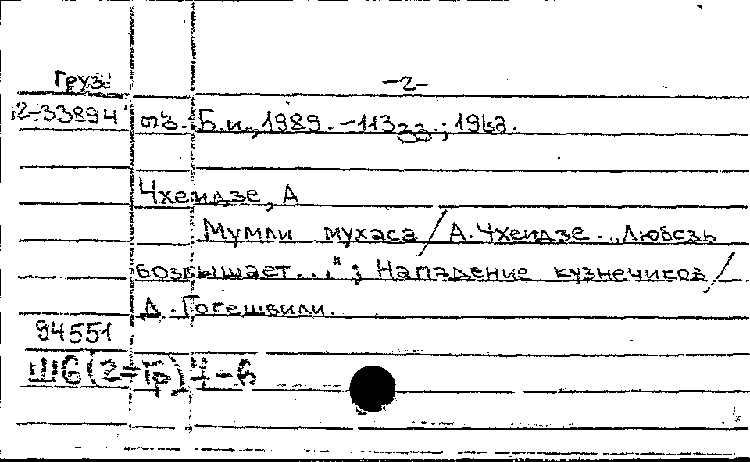 Груз. -2-
2-33894 отв. Б.и., 1989. -113 ; 19
Чхеидзе, А
Мумли мухаса / А. Чхеидзе. „Любовь
возвышает..."; Нападение кузнечиков /
Д. Гогешвили.
94551
Ш6(2=Гр) Ч-